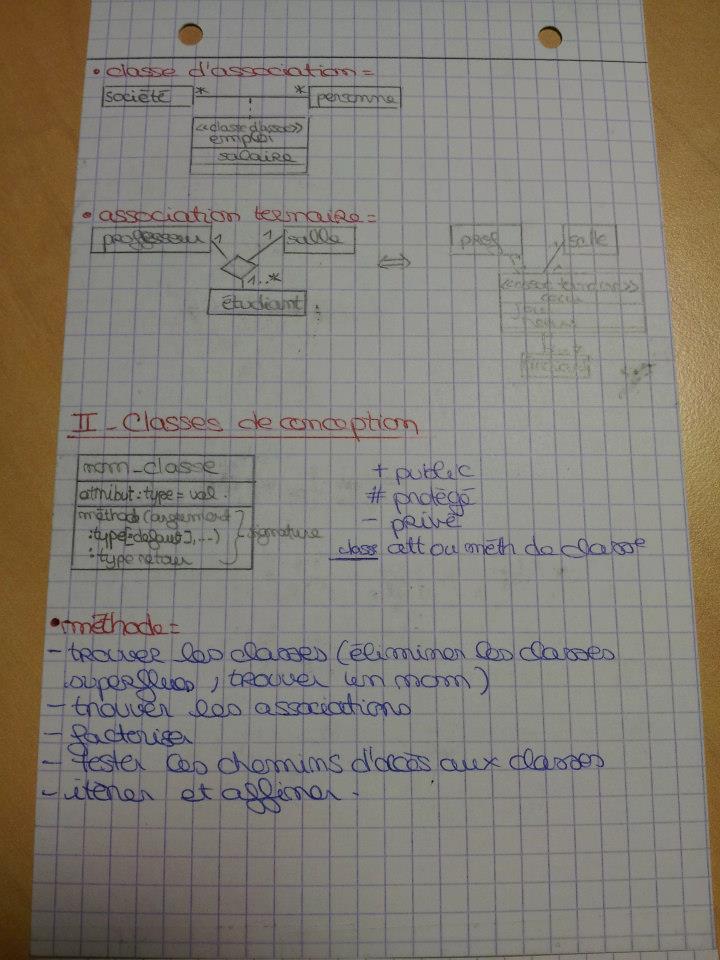 • classe d'association =
société * * personne
<<classe d'assoc>>
emploi
salaire
• association ternaire =
professeur 1 1 salle
1..*
étudiant
prof salle
II - Classes de conception
nom_classe
attribut : type = val.
méthode (argument
: type[=défaut], ...)
: type retour
signature
+ public
# protégé
- privé
class att ou méth de classe
• méthode =
- trouver les classes (éliminer les classes
superflues, trouver un nom)
- trouver les associations
- factoriser
- tester les chemins d'accès aux classes
- itérer et affiner.